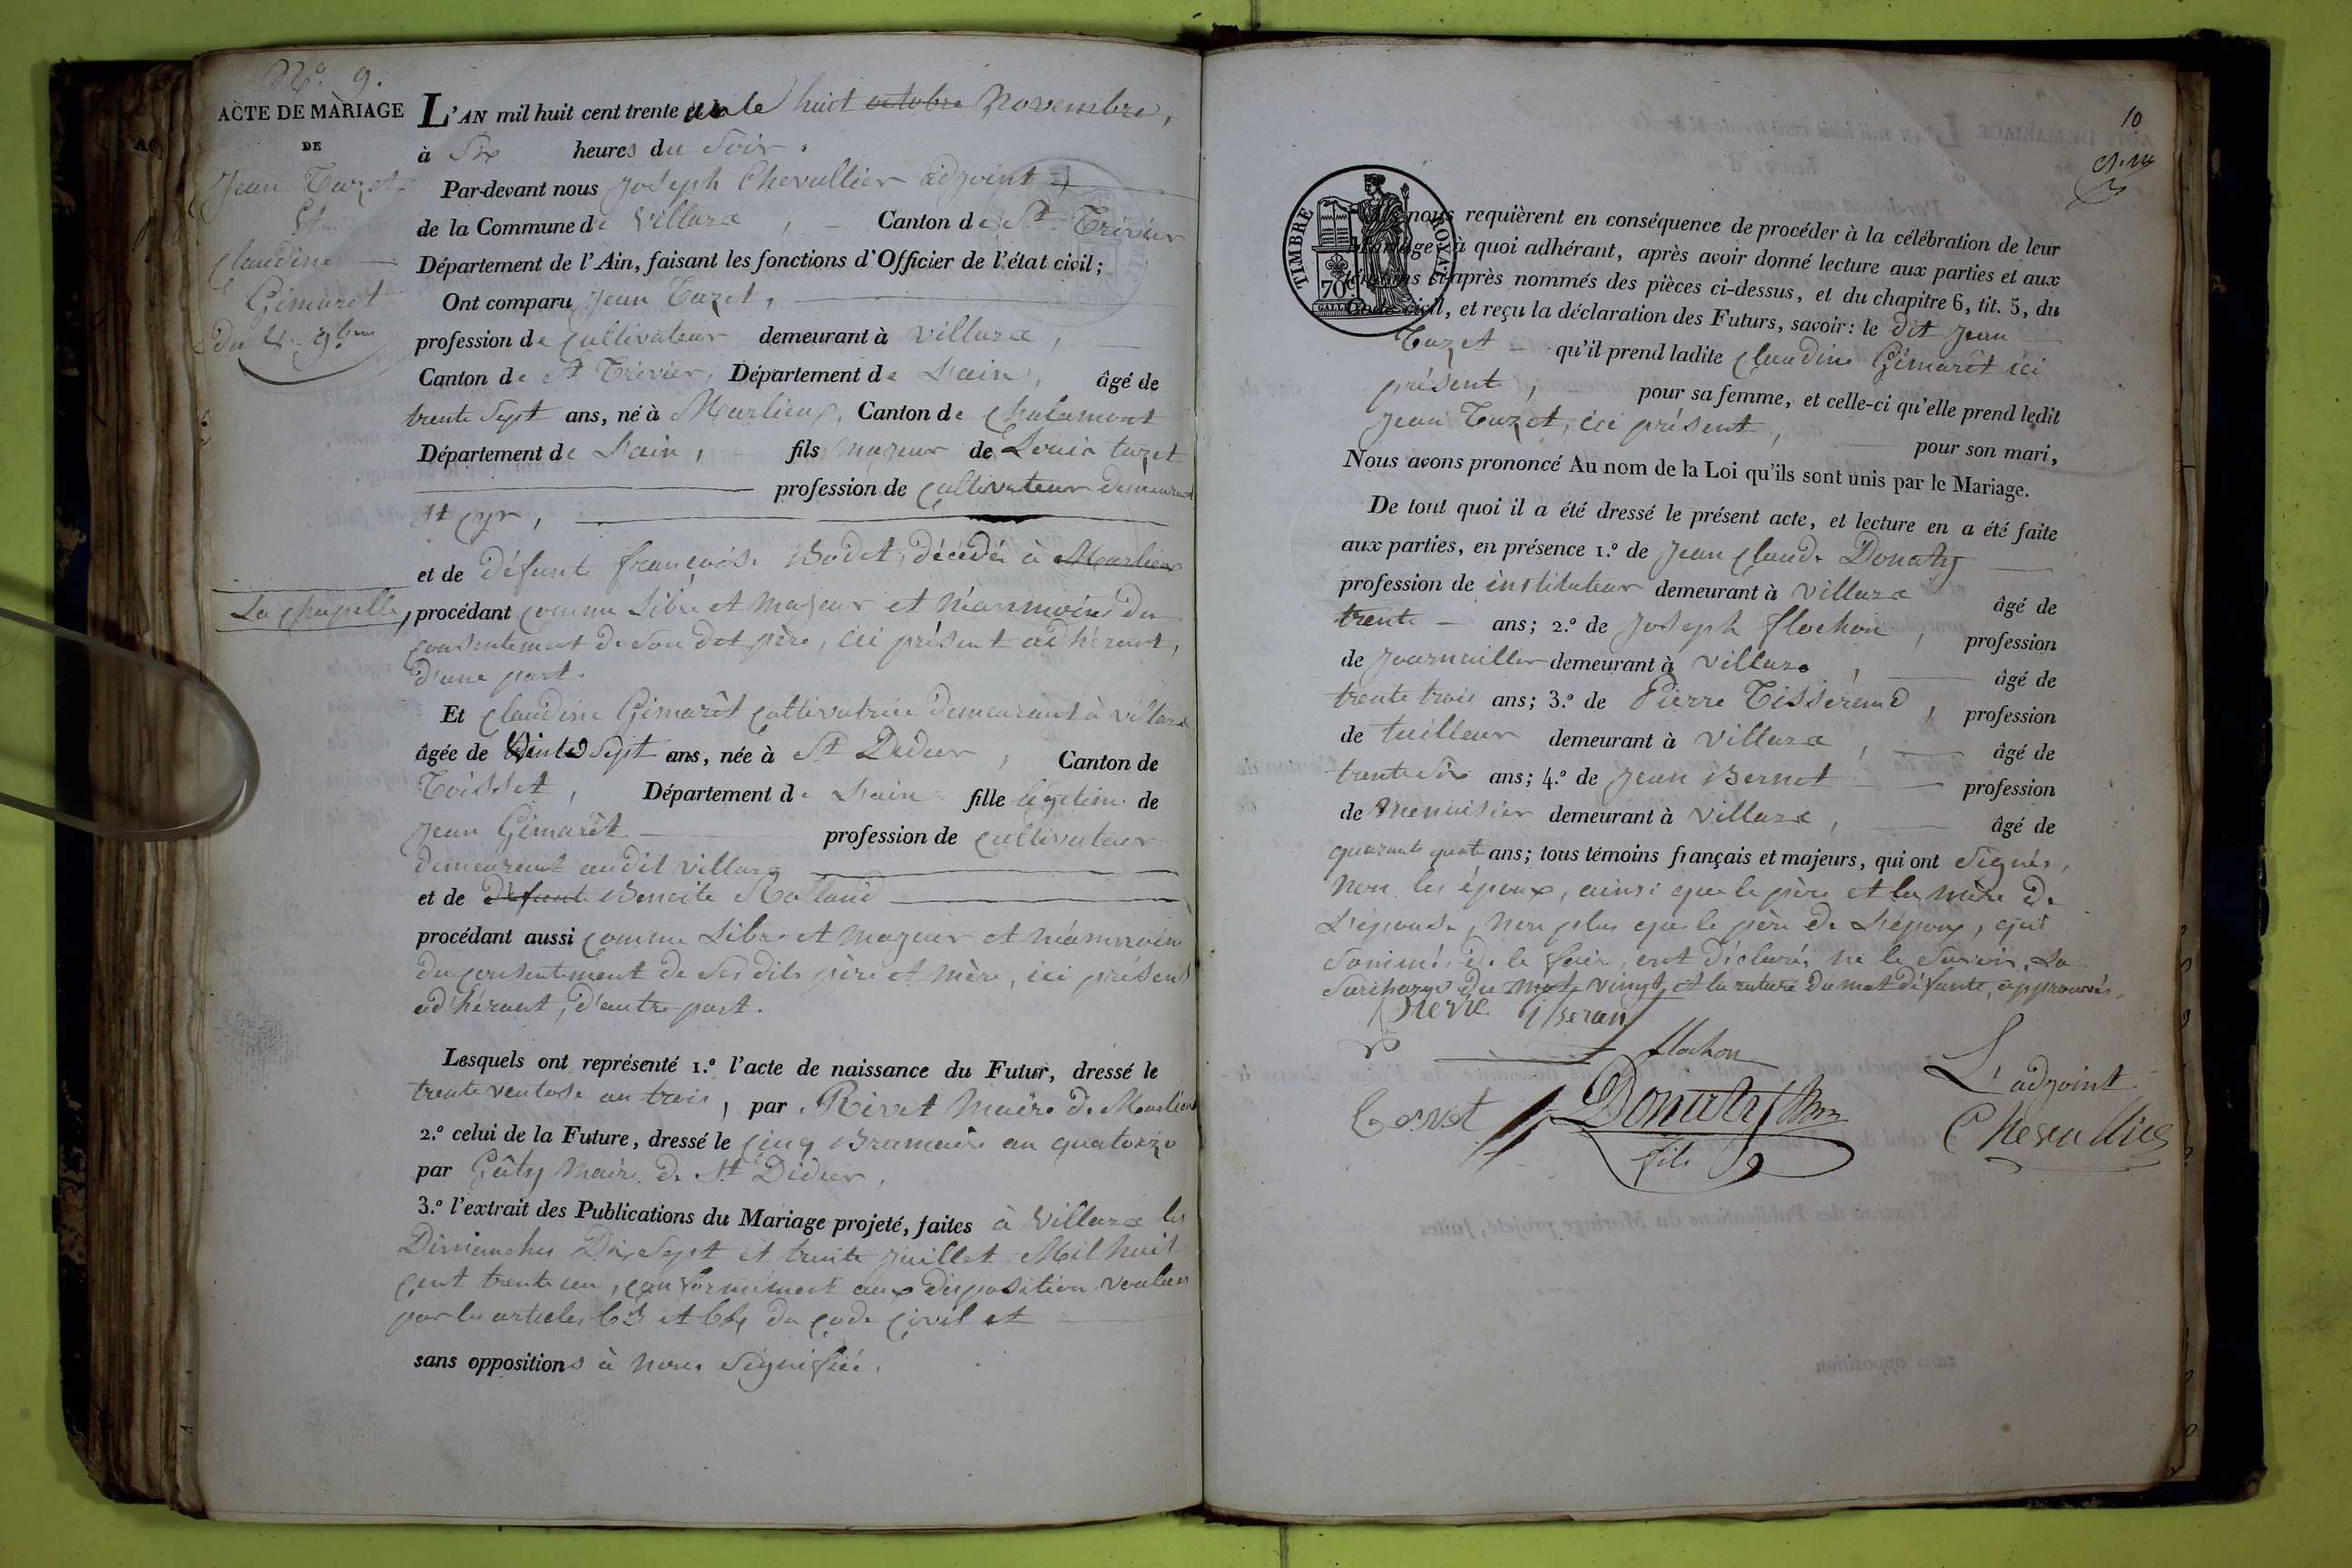 N.° 9.
ACTE DE MARIAGE
DE
Jean Tuzet
Et
Claudine
Gimarêt
du 8. 9bre
L'AN mil huit cent trente un le huit octobre Novembre,
à Six heures du Soir.
Par-devant nous Joseph Chevallier adjoint
de la Commune de Villars, Canton de St. Trivier
Département de l'Ain, faisant les fonctions d'Officier de l'état civil;
Ont comparu Jean Tuzet,
profession de Cultivateur demeurant à Villars,
Canton de St Trivier, Département de L'ain, âgé de
trente Sept ans, né à Marlieux, Canton de Chalamont
Département de L'ain, fils majeur de Louis tuzet
profession de Cultivateur demeurant
St Cyr,
et de défunte françoise Bodet, décédée à Marlieux
La Chapelle, procédant comme Libre et majeur et néanmoins du
consentement de Son dit père, ici présent adhérant,
d'une part.
Et Claudine Gimarêt Cultivatrice demeurant à Villars
âgée de Vint Sept ans, née à St Didier, Canton de
Toisset, Département de L'ain fille légitime de
Jean Gimarêt profession de Cultivateur
demeurant audit Villars
et de défunte Benoite Rolland
procédant aussi comme Libre et majeur et néanmoins
du consentement de Ses dits père et mère, ici présents
adhérant, d'autre part.
Lesquels ont représenté 1.° l'acte de naissance du Futur, dressé le
trente ventose an trois, par Rivet Maire de Marlieux
2.° celui de la Future, dressé le Cinq Brumaire an quatorze
par Gâty Maire de St Didier,
3.° l'extrait des Publications du Mariage projeté, faites à Villars les
Dimanches Dix Sept et trente juillet Mil huit
Cent trente un, conformément aux disposition voulues
par les articles 63 et 64 du Code Civil et
sans oppositions à nous Signifiée.
10
TIMBRE ROYAL
70c
nous requièrent en conséquence de procéder à la célébration de leur
Mariage; à quoi adhérant, après avoir donné lecture aux parties et aux
témoins ci-après nommés des pièces ci-dessus, et du chapitre 6, tit. 5, du
Code civil, et reçu la déclaration des Futurs, savoir: le dit Jean
Tuzet qu'il prend ladite Claudine Gimarêt ici
présente, pour sa femme, et celle-ci qu'elle prend ledit
Jean Tuzet, ici présent, pour son mari,
Nous avons prononcé Au nom de la Loi qu'ils sont unis par le Mariage.
De tout quoi il a été dressé le présent acte, et lecture en a été faite
aux parties, en présence 1.° de Jean Claude Donaty
profession de instituteur demeurant à Villars âgé de
trente ans; 2.° de Joseph flochon, profession
de Journaillier demeurant à Villars, âgé de
trente trois ans; 3.° de Pierre Tisserand, profession
de tailleur demeurant à Villars, âgé de
trente Six ans; 4.° de Jean Bernet profession
de Menuisier demeurant à Villars, âgé de
quarante quatre ans; tous témoins français et majeurs, qui ont Signés,
Non les époux, ainsi que le père et la mère de
L'épouse, non plus que le père de L'époux, qui
Sommé de le faire ont déclaré ne le Savoir. La
Surcharge du mot vingt et la rature du mot défunte, approuvés,
Pierre Tisseran
flochon
Donaty
fils
L'adjoint
Chevallier